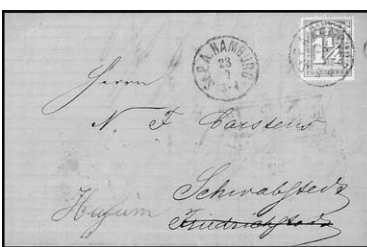 S.P.A. HAMBURG
23
1¼
Herrn
N. F. Carstens
Schwabstedt
Husum
Friedrichstadt